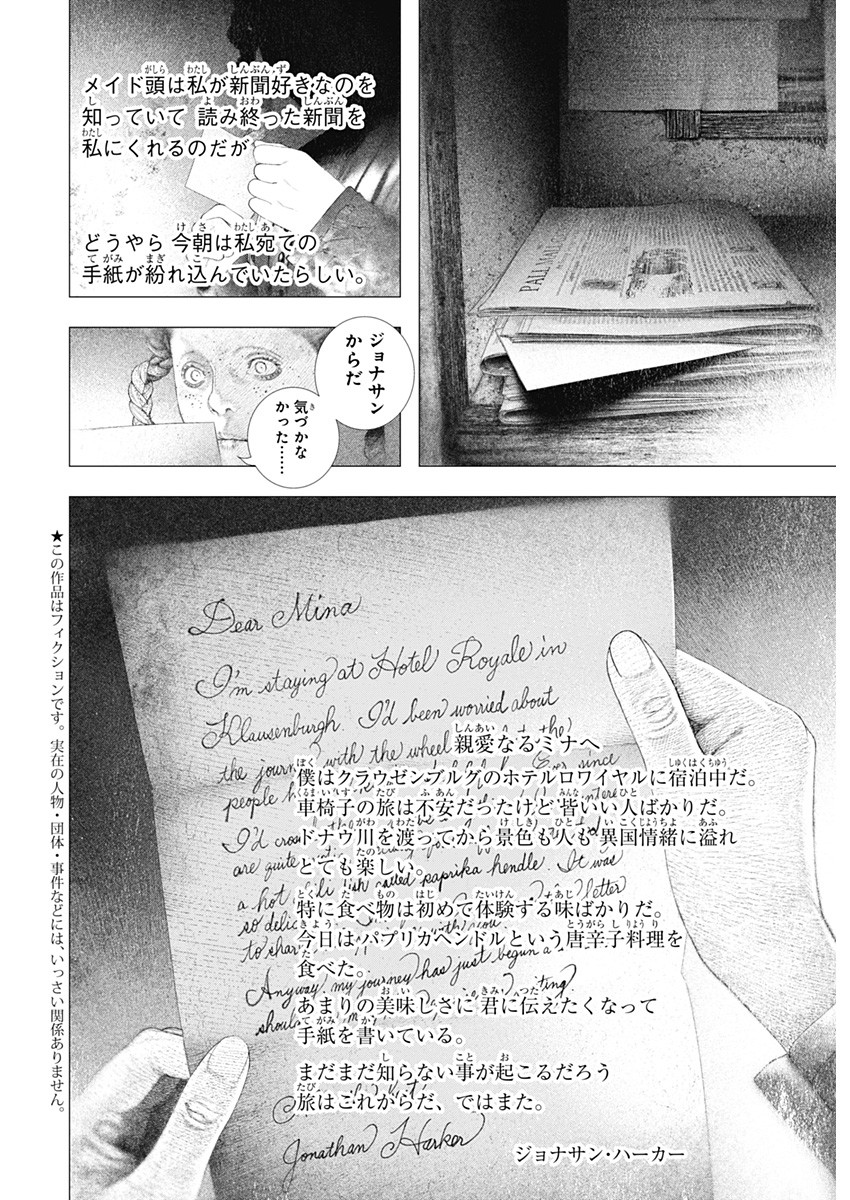 PALL MALL GAZ
メイド頭は私が新聞好きなのを
知っていて 読み終った新聞を
私にくれるのだが
どうやら 今朝は私宛ての
手紙が紛れ込んでいたらしい。
ジョナサン
からだ
気づかな
かった……
Dear Mina
I'm staying at Hotel Royale in
Klausenburgh. I'd been worried about
the journey with the wheel
people
since
I'd
are quite
a hot
called paprika hendle. It was
so deli
letter
to shar
with you
Anyway, my journey has just begun a
shoul
writing.
Jonathan Harker
親愛なるミナへ
僕はクラウゼンブルグのホテルロワイヤルに宿泊中だ。
車椅子の旅は不安だったけど 皆いい人ばかりだ。
ドナウ川を渡ってから景色も人も異国情緒に溢れ
とても楽しい。
特に食べ物は初めて体験する味ばかりだ。
今日はパプリカヘンドルという唐辛子料理を
食べた。
あまりの美味しさに 君に伝えたくなって
手紙を書いている。
まだまだ知らない事が起こるだろう
旅はこれからだ、ではまた。
ジョナサン・ハーカー
★この作品はフィクションです。実在の人物・団体・事件などには、いっさい関係ありません。